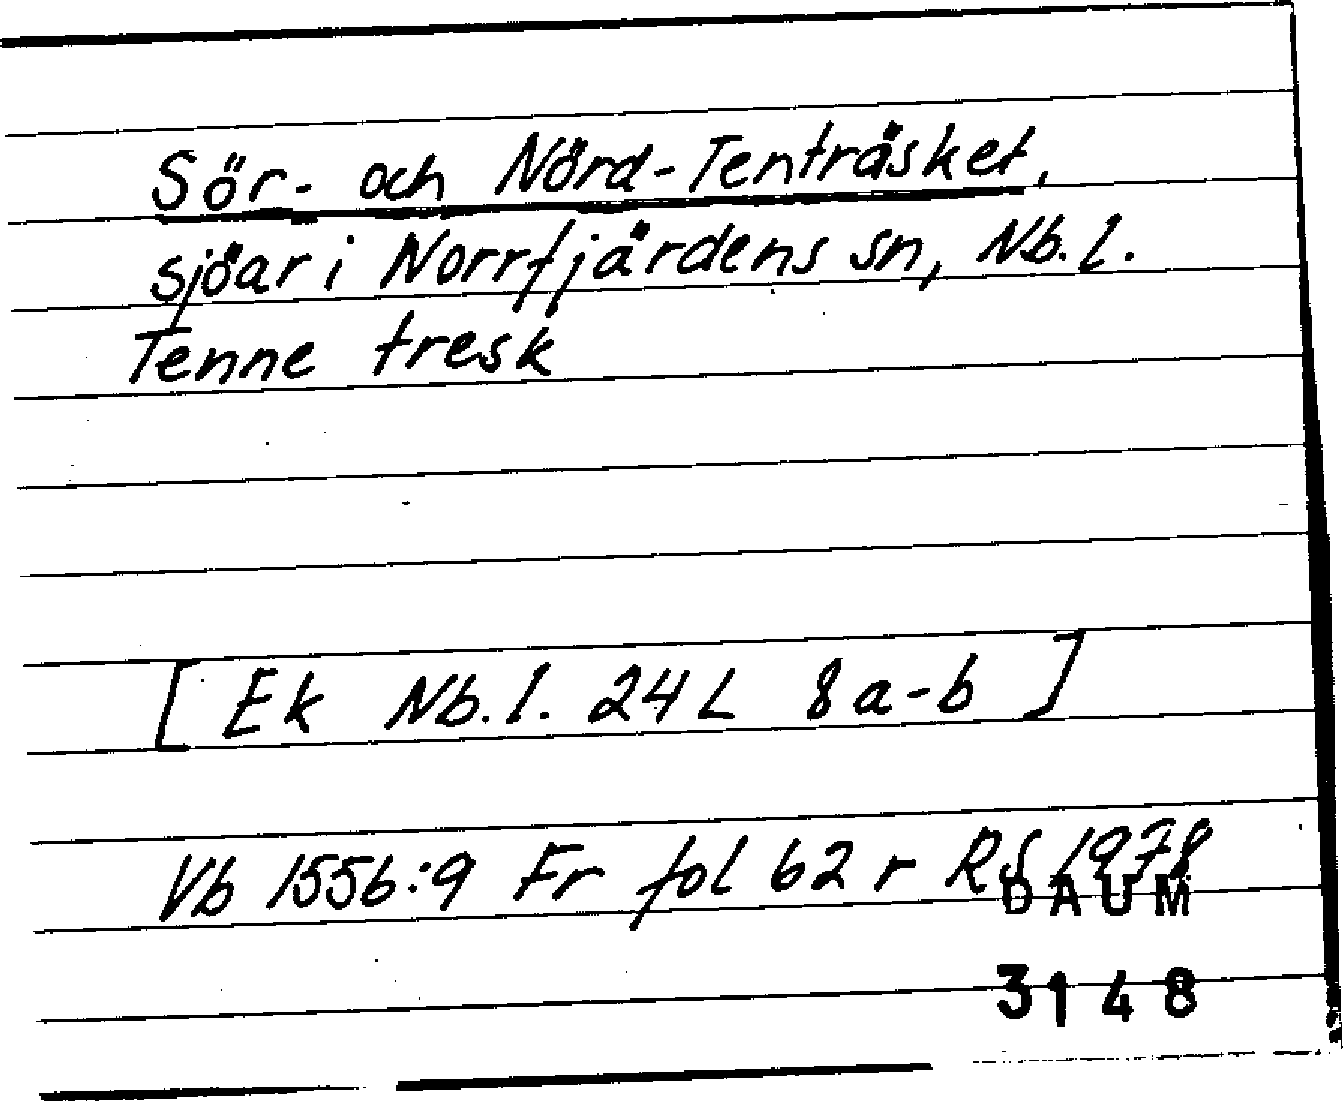 Sör- och Nörd-Tenträsket,
sjöar i Norrfjärdens sn, Nb. l.
Tenne tresk
[ Ek Nb. l. 24L 8a-b ]
Vb 1556:9 Fr fol 62 r RS 1978
DAUM
3148